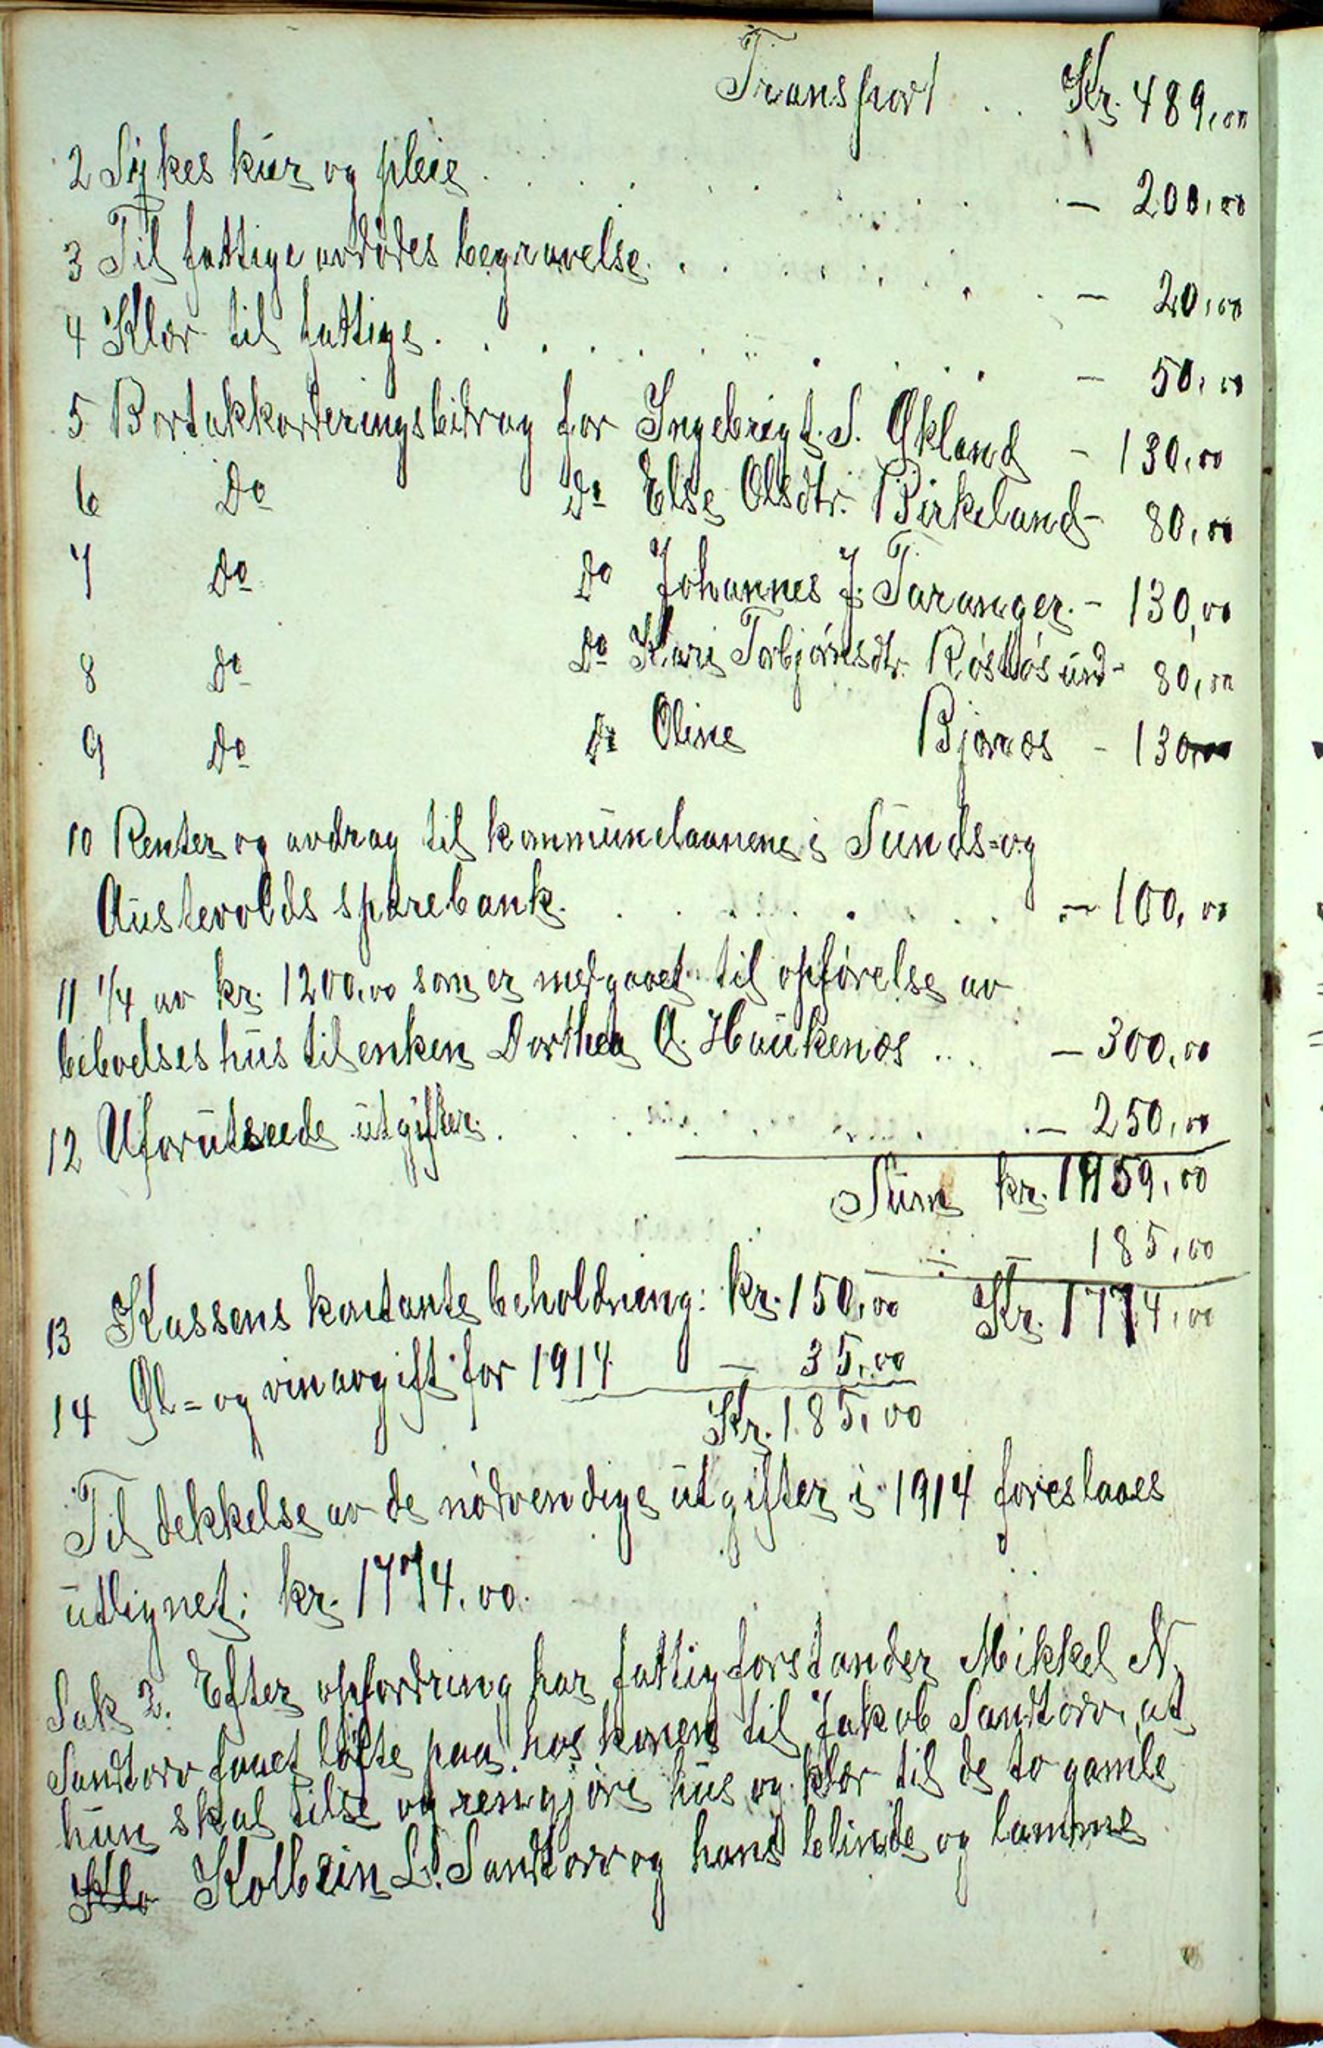 Transport . . Kr. 489,00
2 Sykes kur og pleie . . . . . . . . . . — 200,00
3 Til fattige avdødes begravelse . . . . . . . . . — 20,00
4 Klær til fattige . . . . . . . . . . . — 50,00
5 Bortakkorderingsbidrag for Ingebrigt S. Økland — 130,00
6 Do Do Else Olsdtr. Birkeland — 80,00
7 Do Do Johannes J. Taranger — 130,00
8 Do Do Kari Torbjørnsdtr. Røstøsund — 80,00
9 Do Do Oline Bjånæs — 130,00
10 Renter og avdrag til kommunelaanene i Sunds= og
Austevolds sparebank . . . . . . . . . — 100,00
11 1/4 av kr. 1200,00 som er medgaaet til opførelse av
beboelseshus til enken Dorthea A. Haukenæs . . . — 300,00
12 Uforutseede utgifter . . . . . . . . . . — 250,00
Sum kr. 1959,00
÷ — 185,00
13 Kassens kontante beholdning: kr. 150,00 Kr. 1774,00
14 Øl= og vinavgift for 1914 — 35,00
Kr. 185,00
Til dekkelse av de nødvendige utgifter i 1914 foreslaaes
utlignet: kr. 1774,00.
Sak 2. Efter opfordring har fattigforstander Mikkel N.
Sandtorv faaet løfte paa hos konen til Jakob Sandtorv, at
hun skal tilse og rengjøre hus og klær til de to gamle
Klo Kolbein L. Sandtorv og hans blinde og lamme